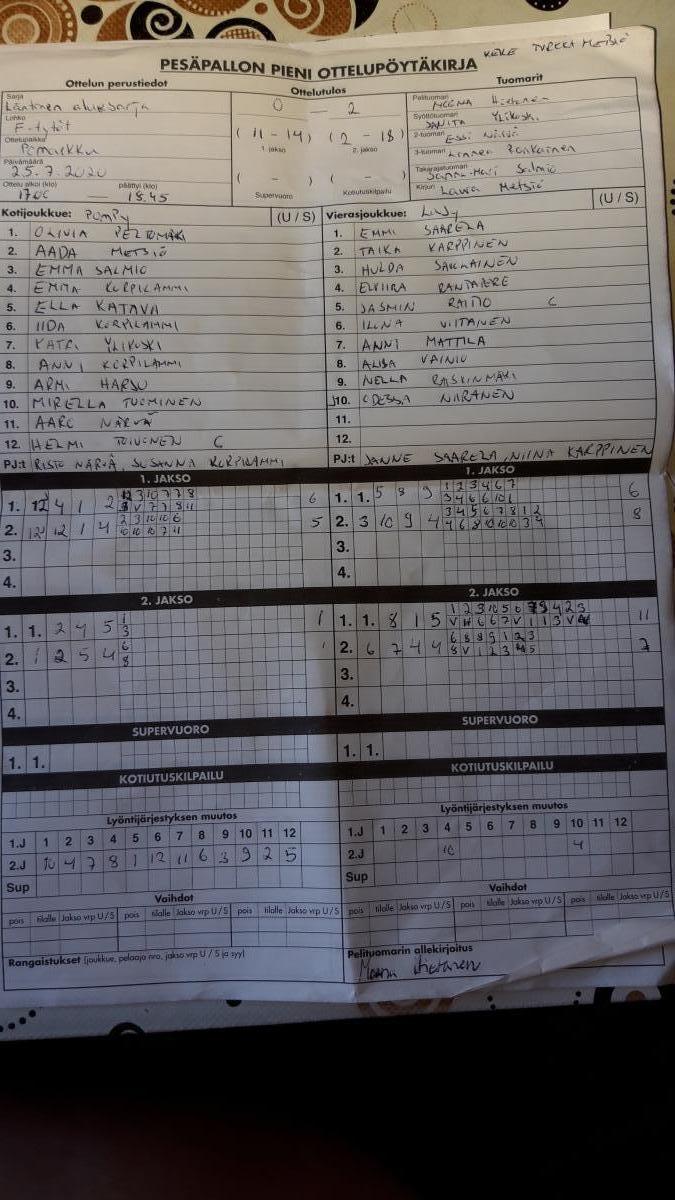 PESÄPALLON PIENI OTTELUPÖYTÄKIRJA
Ottelun perustiedot
Ottelutulos
Tuomarit
Sarja
Läntinen aluesarja
Lohko
F-tytöt
Ottelupaikka
Pomarkku
Päivämäärä
25.7.2020
Ottelu alkoi (klo) päättyi (klo)
1700 — 18.45
0 — 2
(11 - 14) (2 - 18)
1. jakso 2. jakso
( - ) ( - )
Supervuoro Kotiutuskilpailu
Pelituomari
Syöttötuomari
JANITA Ylikoski
2-tuomari Essi Närvä
3-tuomari
Takarajatuomari
Sanna-Mari Salmio
Kirjuri Laura Metsiö
Kotijoukkue: PomPy (U / S)
1. OLIVIA PELTOMÄKI
2. AADA METSIÖ
3. EMMA SALMIO
4. EMMA KORPILAMMI
5. ELLA KATAVA
6. IIDA KORPILAMMI
7. KATRI YLIKOSKI
8. ANNI KORPILAMMI
9. ARMI HARJU
10. MIRELLA TUOMINEN
11. NÄRVÄ
12. HELMI TOIVONEN C
PJ:t RISTO NÄRVÄ, SUSANNA KORPILAMMI
Vierasjoukkue: (U / S)
1. EMMI SAARELA
2. TAIKA KARPPINEN
3. HULDA
4. ELVIIRA
5. JASMIN RAITIO C
6. ILONA VIITANEN
7. ANNI MATTILA
8. ALISA VAINIO
9. NELLA RAISKINMÄKI
10. ODESSA NIIRANEN
11.
12.
PJ:t JANNE SAARELA, NIINA KARPPINEN
1. JAKSO
1. 12 4 1 2 6
2. 12 12 1 4 5
3.
4.
1. JAKSO
1. 1. 5 8 9 1 2 3 4 6 7 6
2. 3 10 9 4 3 4 5 6 7 8 1 2 8
3.
4.
2. JAKSO
1. 1. 2 4 5 1 3 1
2. 1 2 5 4 6 8 1
3.
4.
2. JAKSO
1. 1. 8 1 5 11
2. 6 7 4 4 6 8 8 9 1 2 3 7
3.
4.
SUPERVUORO
1. 1.
SUPERVUORO
1. 1.
KOTIUTUSKILPAILU
KOTIUTUSKILPAILU
Lyöntijärjestyksen muutos
1.J 1 2 3 4 5 6 7 8 9 10 11 12
2.J 10 4 7 8 1 12 11 6 3 9 2 5
Sup
Lyöntijärjestyksen muutos
1.J 1 2 3 4 5 6 7 8 9 10 11 12
2.J 10 4
Sup
Vaihdot
pois tilalle Jakso vrp U / S pois tilalle Jakso vrp U / S pois tilalle Jakso vrp U / S
Vaihdot
pois tilalle Jakso vrp U / S pois tilalle Jakso vrp U / S pois tilalle Jakso vrp U / S
Rangaistukset (joukkue, pelaaja nro, jakso vrp U / S ja syy)
Pelituomarin allekirjoitus